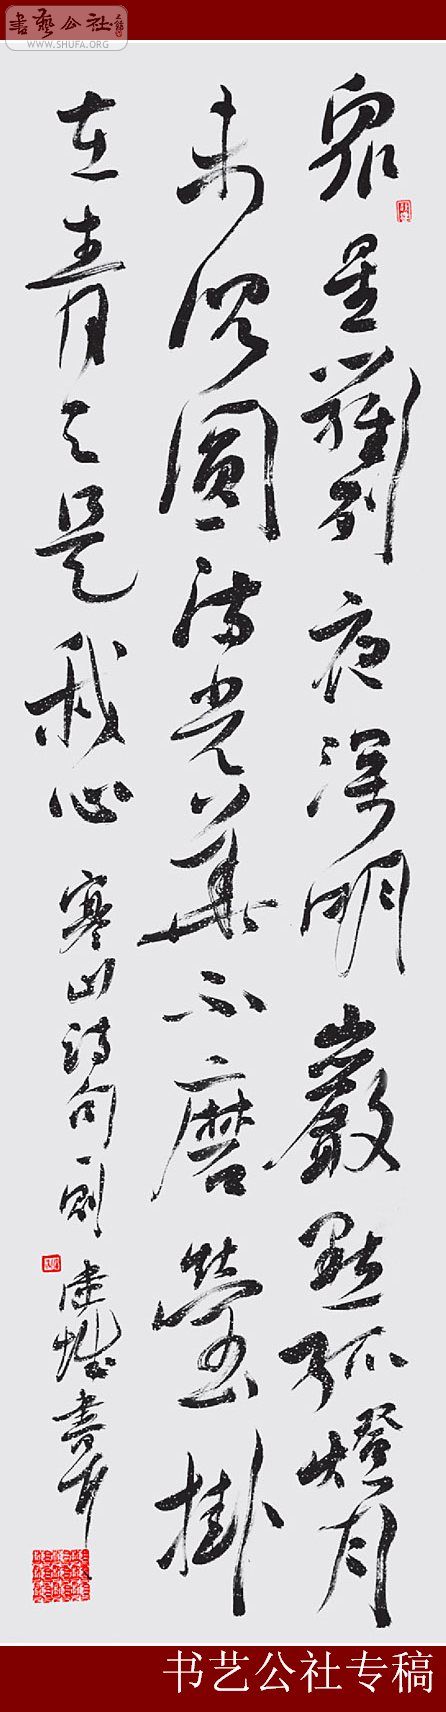 書藝公社
WWW.SHUFA.ORG
眾星羅列夜深明巖點孤燈月
未沉圓滿光華不磨瑩掛
在青天是我心
寒山詩句一則
书艺公社专稿